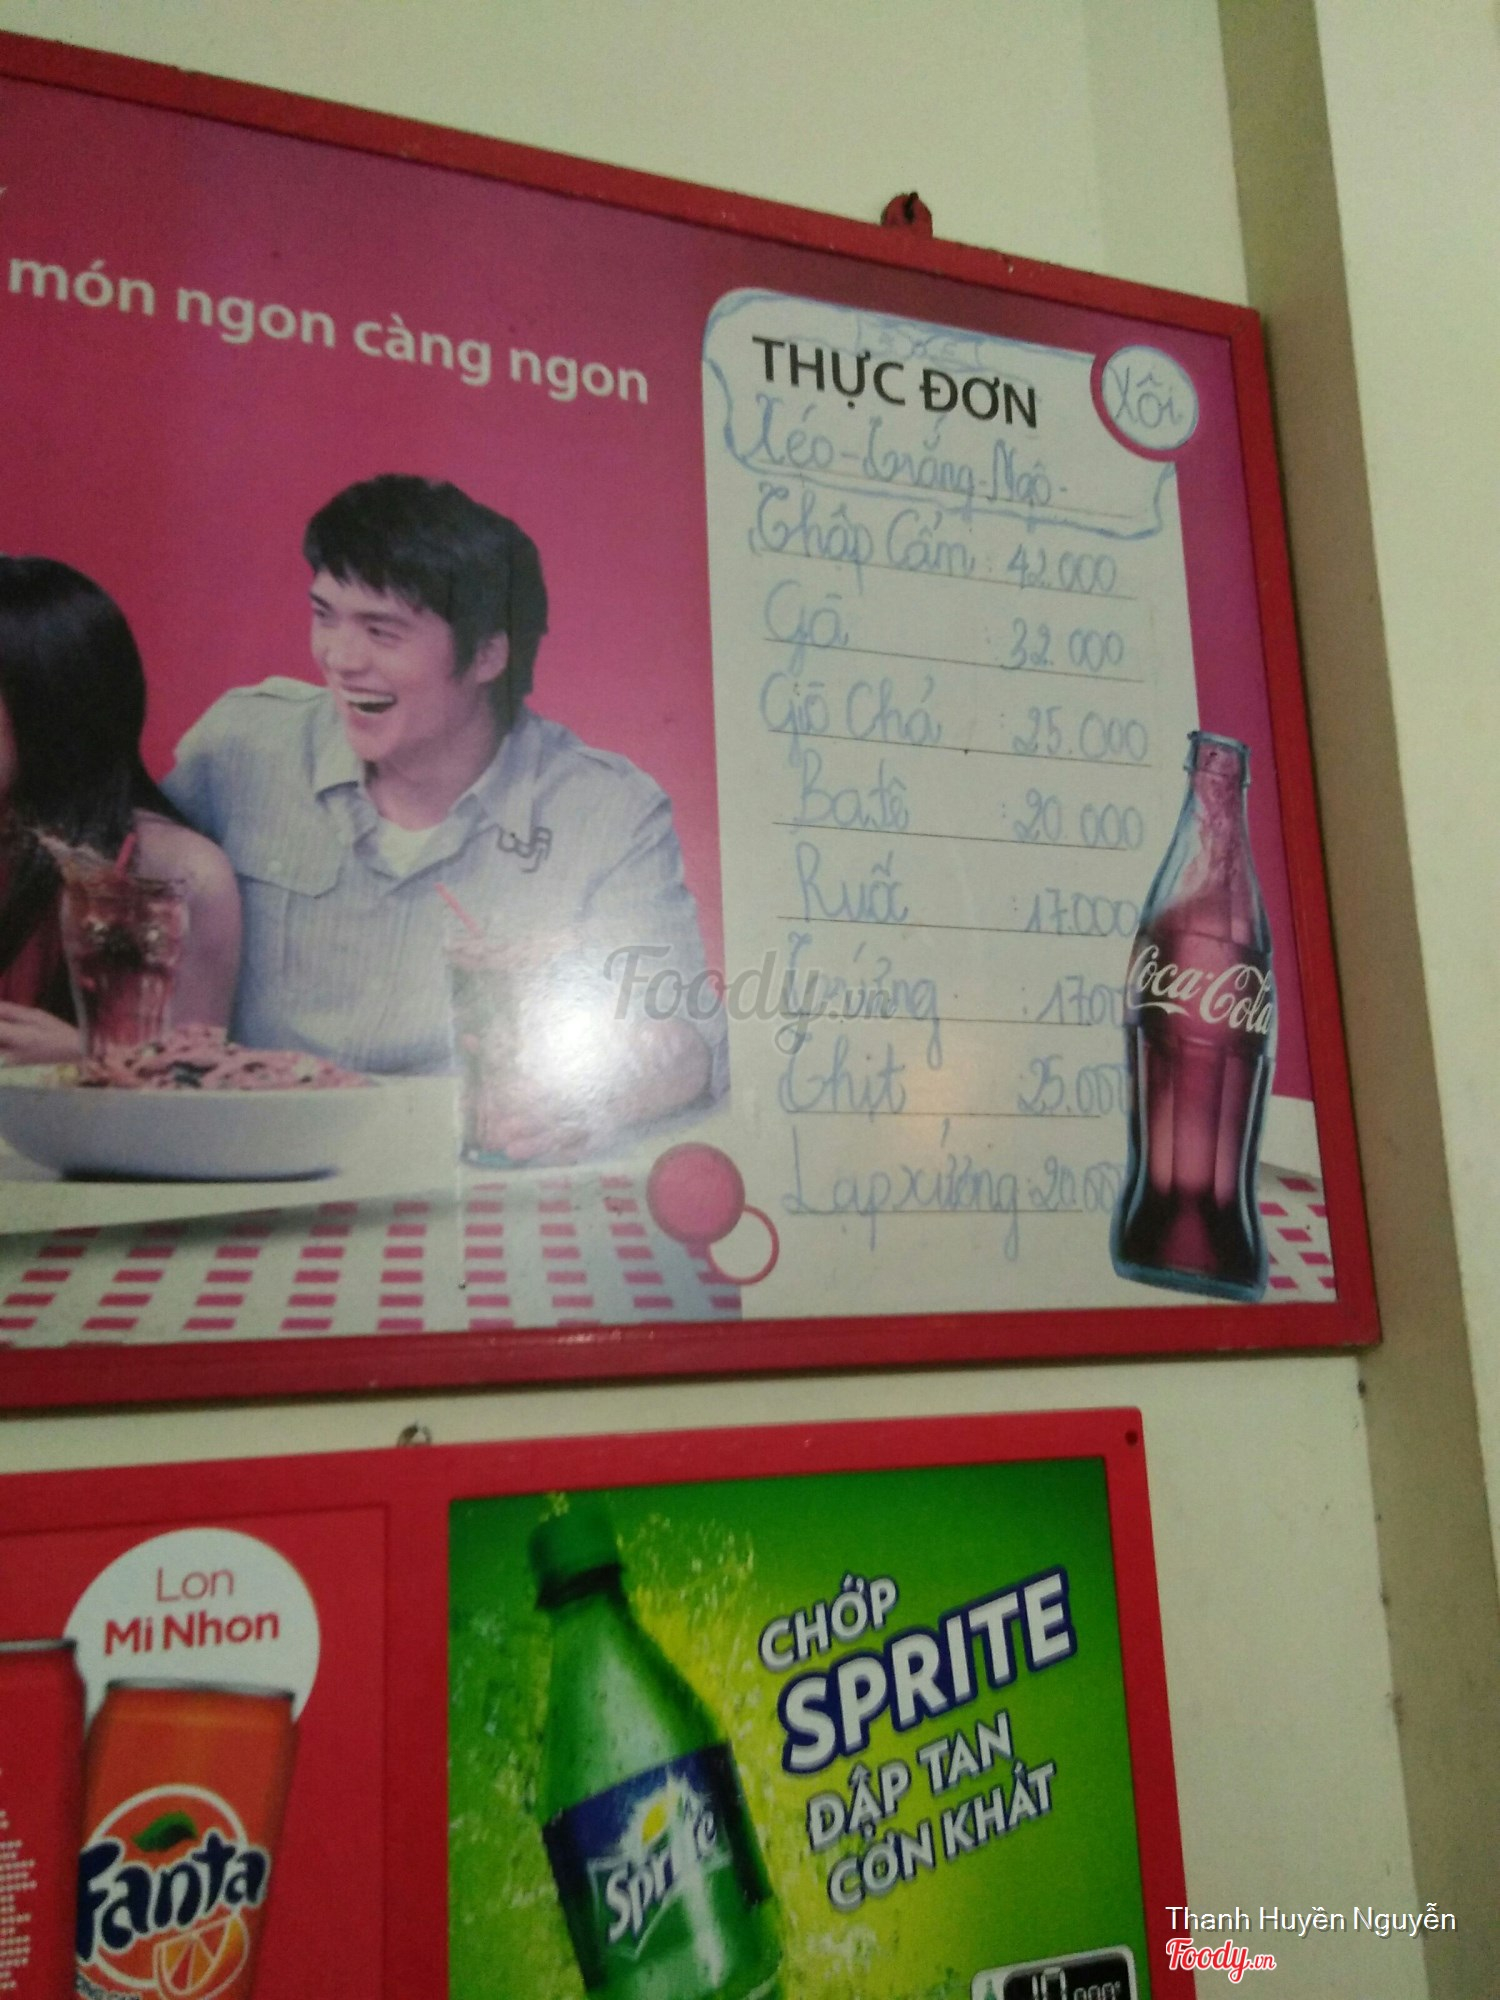 món ngon càng ngon
THỰC ĐƠN
Xôi
Xéo - Trắng - Ngô -
Thập Cẩm : 42.000
Gà : 32.000
Giò Chả : 25.000
Batê : 20.000
Ruốc : 17.000
Trứng : 17.00
Thịt : 25.000
Lạp xưởng : 20.000
Coca-Cola
Foody.vn
Lon
Mi Nhon
Fanta
CHỚP
SPRITE
ĐẬP TAN
CƠN KHÁT
Sprite
10.000đ
Thanh Huyền Nguyễn
Foody.vn